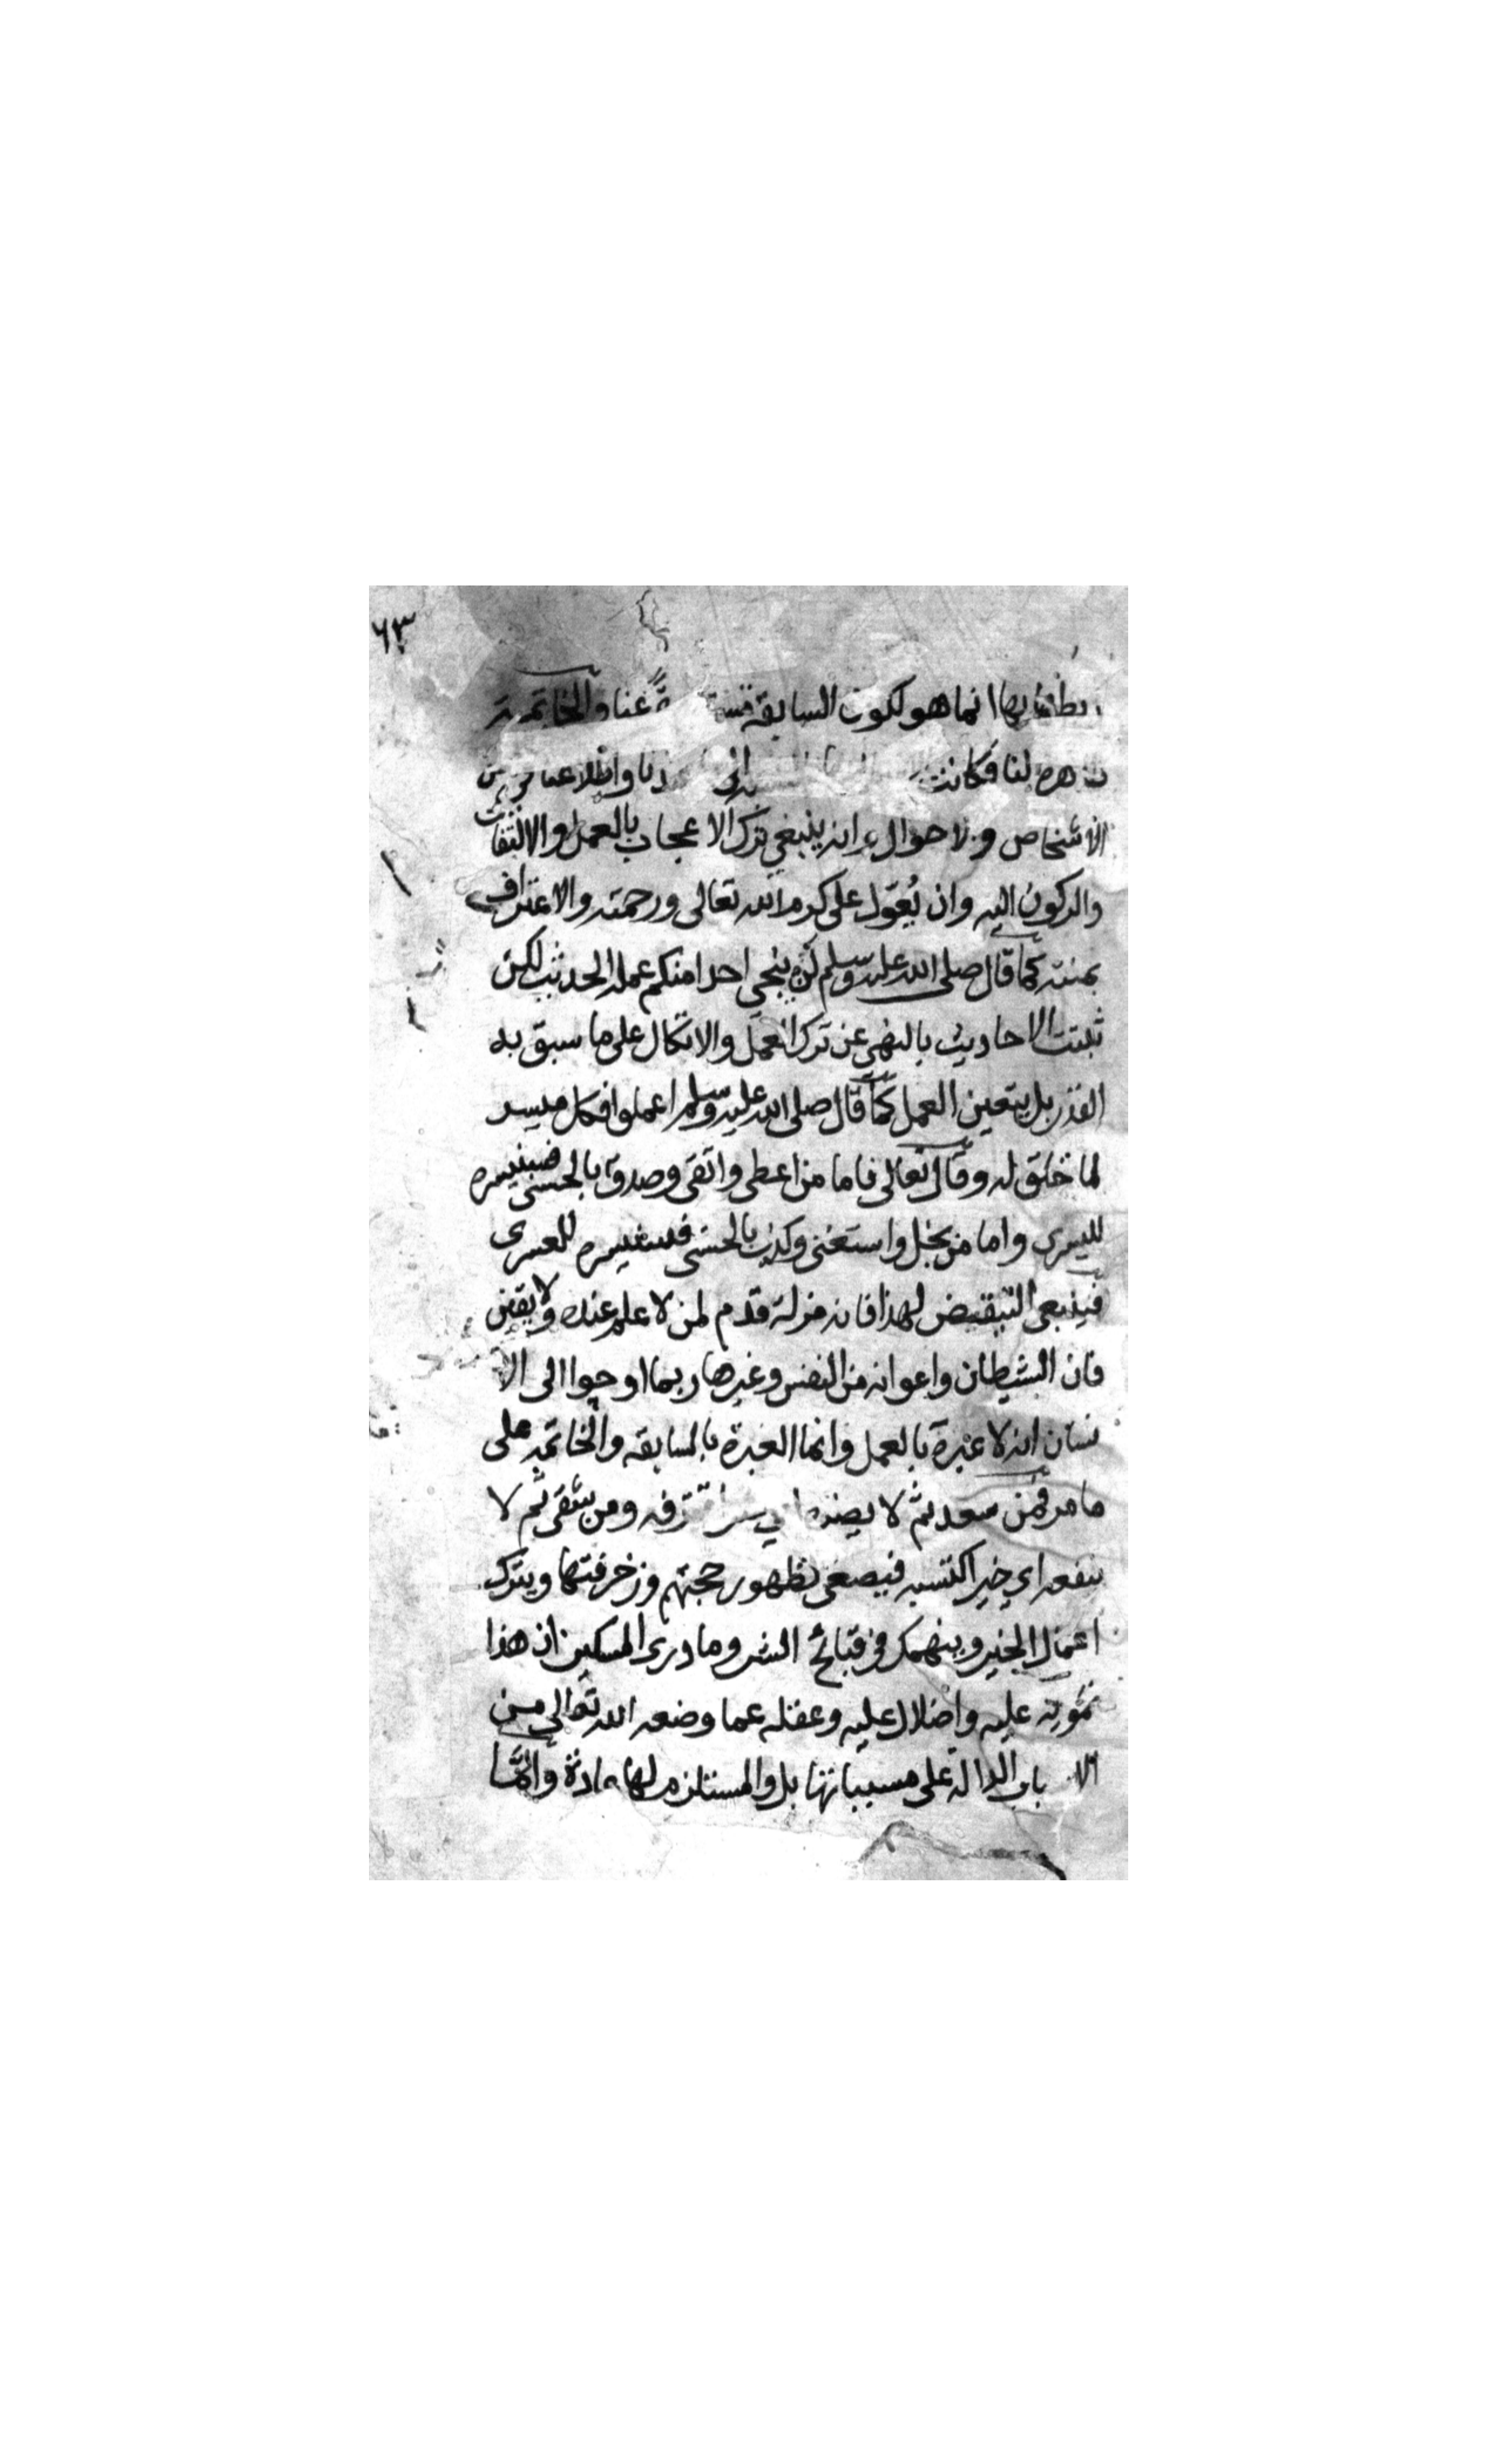 ٦٣
بها انما هو لكون السابقة عنا والخاتمة
لنا فكانت
الاشخاص والاحوال انه ينبغي ترك الاعجاب بالعمل والالتفات
والركون اليه وان يُعوّل على كرم الله تعالى ورحمته والاعتراف
بمنته كما قال صلى الله عليه وسلم لن ينجي احدا منكم عمله الحديث لكن
ثبتت الاحاديث بالنهي عن ترك العمل والاتكال على ما سبق به
القدر بل يتعين العمل كما قال صلى الله عليه وسلم اعملوا فكل ميسر
لما خلق له وقال تعالى فاما من اعطى واتقى وصدق بالحسنى فسنيسره
لليسرى واما من بخل واستغنى وكذب بالحسنى فسنيسره للعسرى
فينبغي التيقيض لهذا فانه مزلة قدم لمن لا علم عنده ولا يقين
فان الشيطان واعوانه من النفس وغيرها ربما اوحوا الى الا
نسان انه لا عبرة بالعمل وانما العبرة بالسابقه والخاتمه على
ما مر فمن سعد ثم لا ومن شقى ثم لا
ينفعه اي خير اكتسبه فيصغى لظهور حجتهم وزخرفتها ويترك
اعمال الخير وينهمك في قبائح الشر وما درى المسكين ان هذا
تمويه عليه واضلال عليه وغفله عما وضعه الله تعالى من
الدالة على مسبباتها بل والمستلزم لها مادة وانما